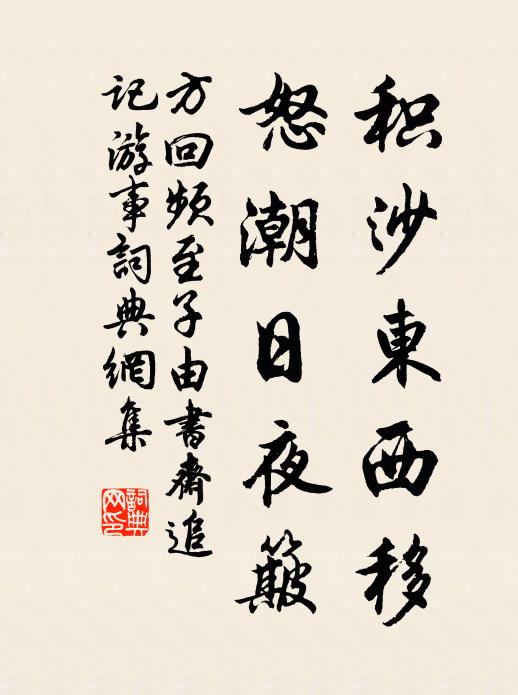 积沙東西移
怒潮日夜簸
方回頻至子由書齋追
記游事詞典網集
詞典
网印